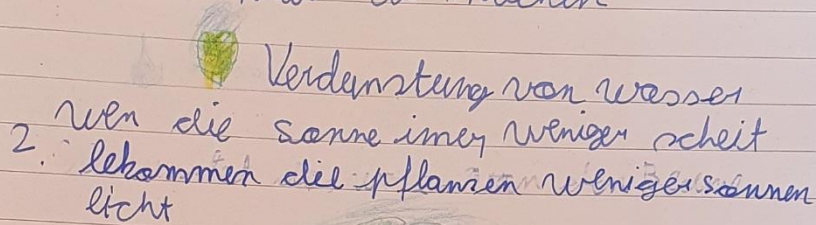 Verdunstung von wasser
wen die sonne imer weniger scheit
2. bekommen die pflanzen weniger sonnen
licht